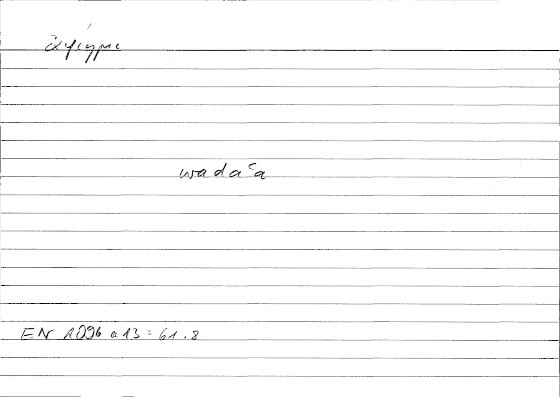 ἀφίημι
wadaʿa
EN 1096 a 13 = 61.8